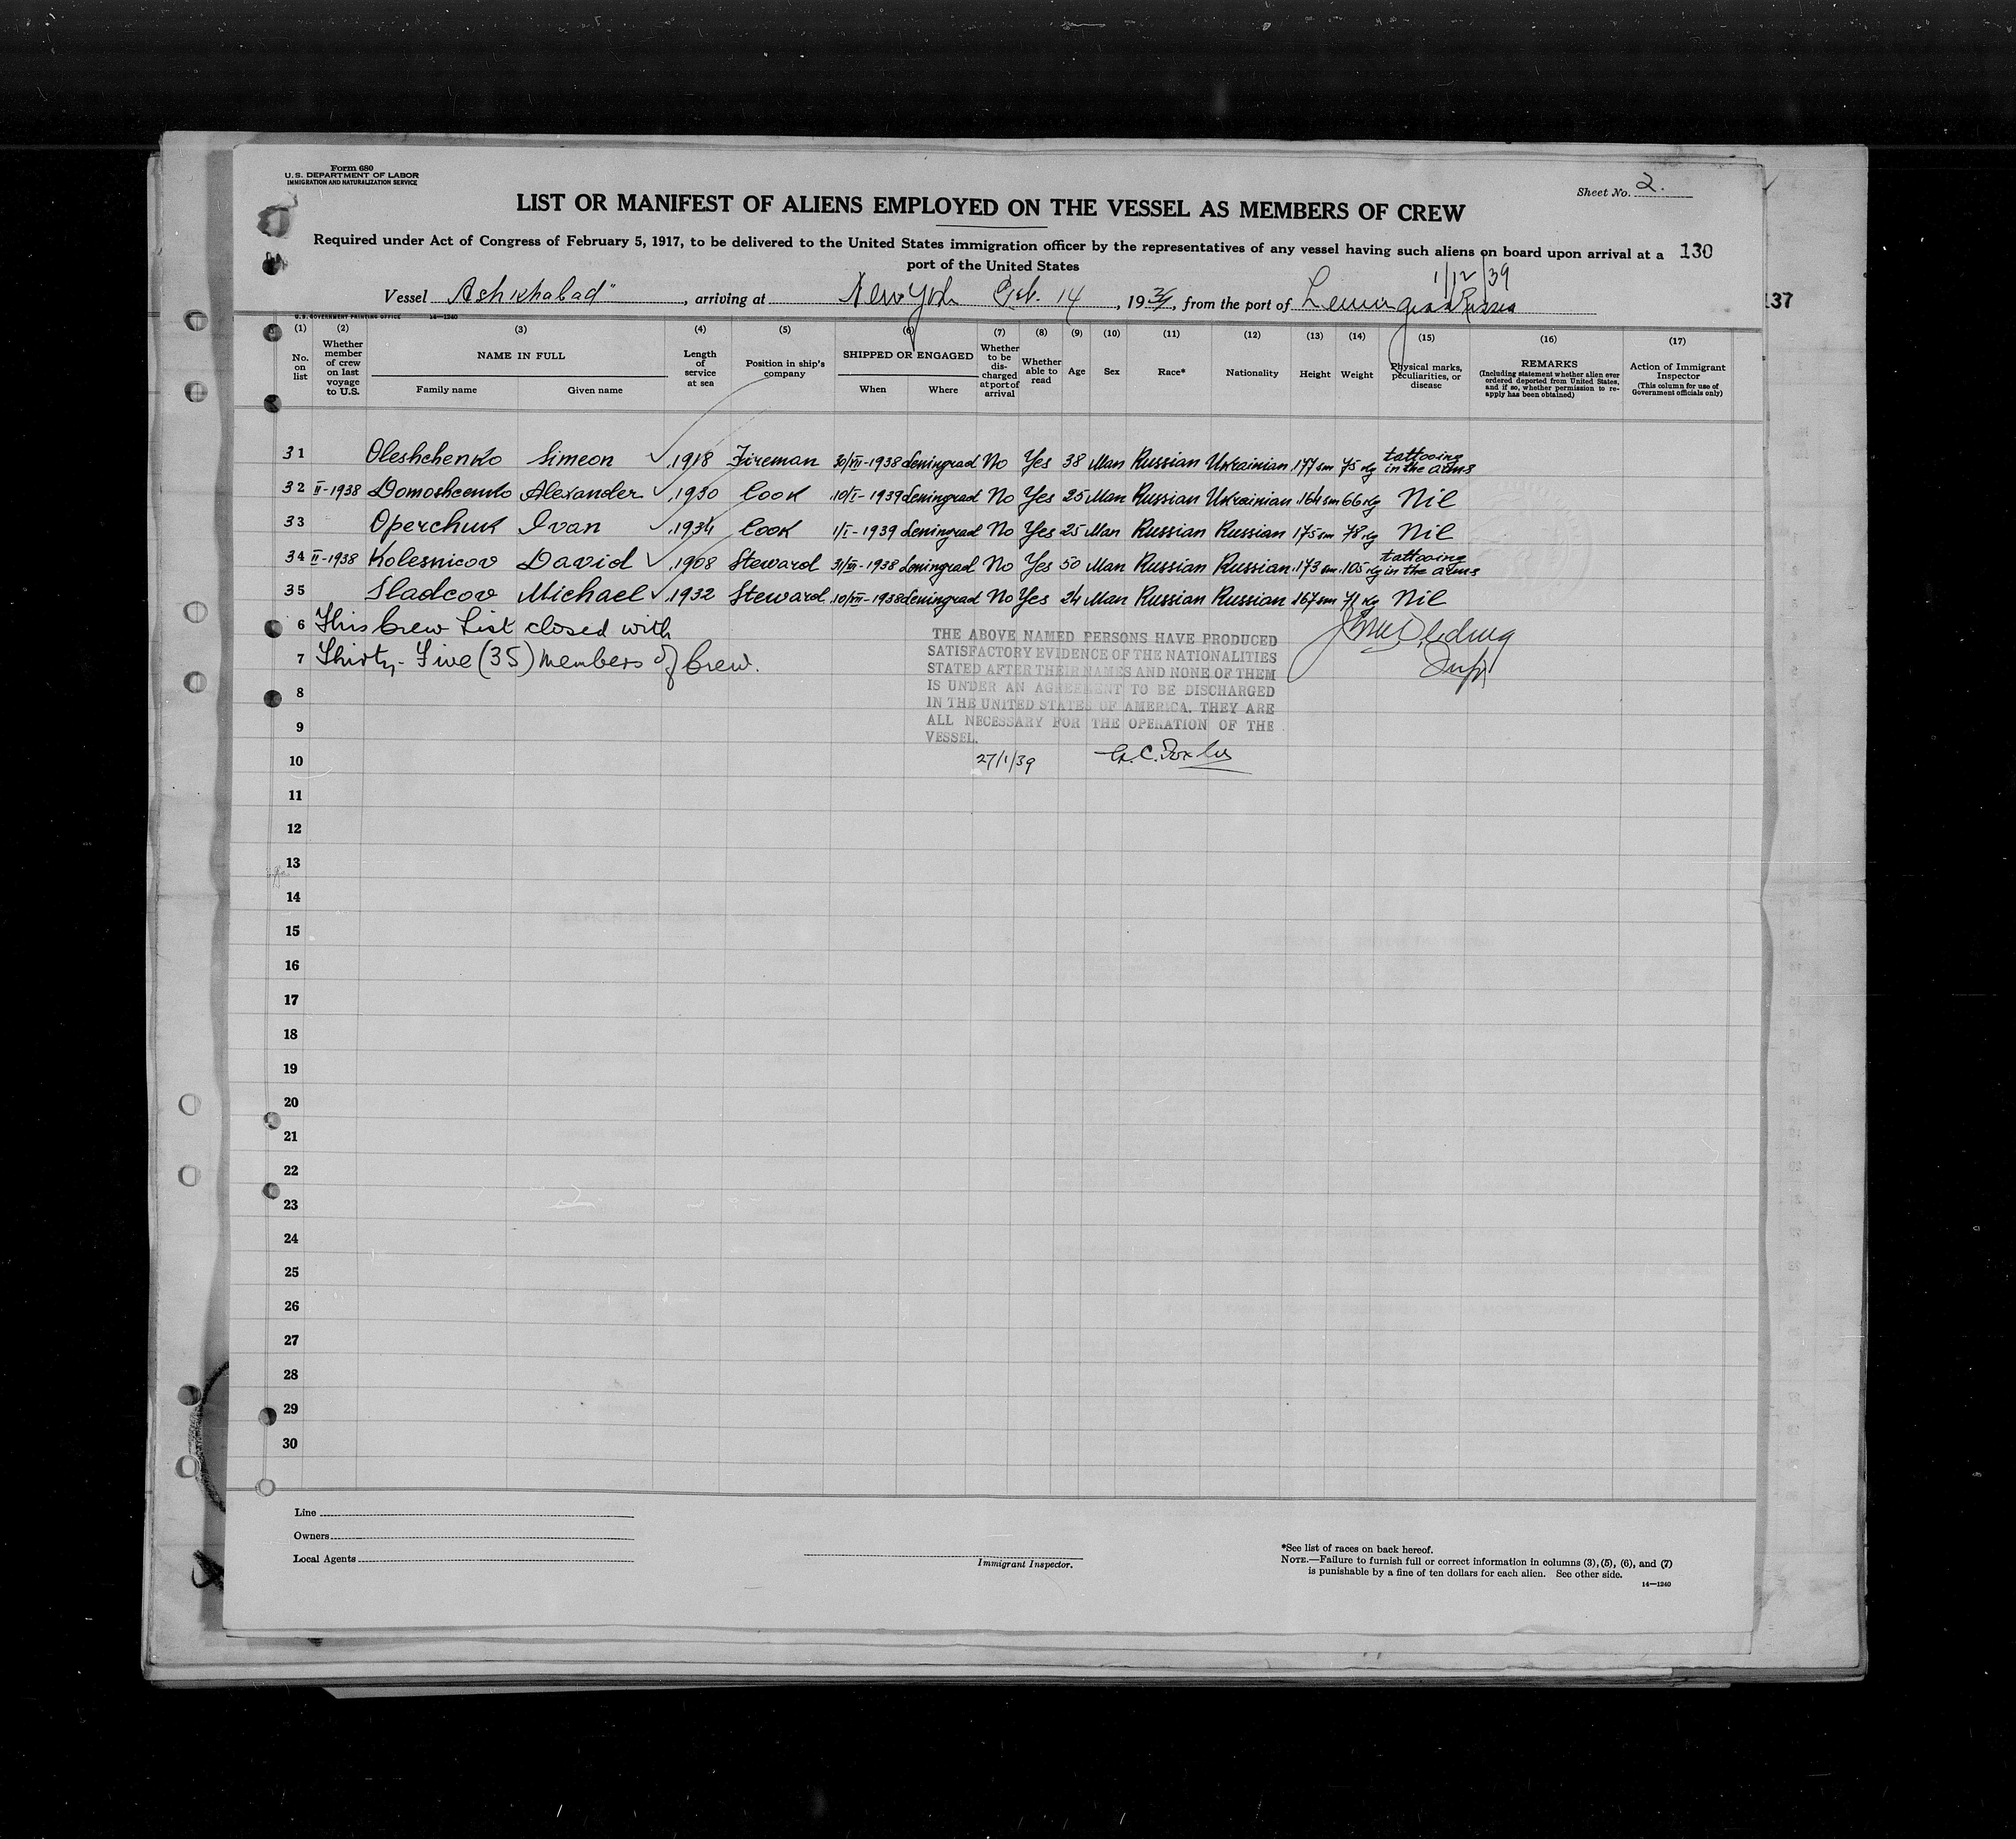 Form 680
U.S. DEPARTMENT OF LABOR
IMMIGRATION AND NATURALIZATION SERVICE
Sheet No. 2.
LIST OR MANIFEST OF ALIENS EMPLOYED ON THE VESSEL AS MEMBERS OF CREW
Required under Act of Congress of February 5, 1917, to be delivered to the United States immigration officer by the representatives of any vessel having such aliens on board upon arrival at a
port of the United States
130
1/12/39
Vessel Ashkhabad", arriving at New York Feb. 14, 19, from the port of Leningrad Russia
137
U.S. GOVERNMENT PRINTING OFFICE 14—1240
(1) (2) (3) (4) (5) (6) (7) (8) (9) (10) (11) (12) (13) (14) (15) (16) (17)
No. on list
Whether member of crew on last voyage to U.S.
NAME IN FULL
Family name Given name
Length of service at sea
Position in ship's company
SHIPPED OR ENGAGED
When Where
Whether to be discharged at port of arrival
Whether able to read
Age
Sex
Race*
Nationality
Height
Weight
Physical marks, peculiarities, or disease
REMARKS
(Including statement whether alien ever ordered deported from United States, and if so, whether permission to re-apply has been obtained)
Action of Immigrant Inspector
(This column for use of Government officials only)
31 Oleshchenko Simeon ✓ 1918 Fireman 30/XII-1938 Leningrad No Yes 38 Man Russian Ukrainian 177 sm 75 kg tattooing in the arms
32 II-1938 Domoshcenko Alexander ✓ 1930 Cook 10/I-1939 Leningrad No Yes 25 Man Russian Ukrainian 164 sm 66 kg Nil
33 Operchuk Ivan ✓ 1934 Cook 1/I-1939 Leningrad No Yes 25 Man Russian Russian 175 sm 78 kg Nil
34 II-1938 Kolesnicov David ✓ 1908 Steward 31/XII-1938 Leningrad No Yes 50 Man Russian Russian 173 sm 105 kg tattooing in the arms
35 Sladcov Michael ✓ 1932 Steward 10/XII-1938 Leningrad No Yes 24 Man Russian Russian 167 sm 71 kg Nil
6 This Crew List closed with
7 Thirty-Five (35) members of Crew.
THE ABOVE NAMED PERSONS HAVE PRODUCED
SATISFACTORY EVIDENCE OF THE NATIONALITIES
STATED AFTER THEIR NAMES AND NONE OF THEM
IS UNDER AN AGREEMENT TO BE DISCHARGED
IN THE UNITED STATES OF AMERICA. THEY ARE
ALL NECESSARY FOR THE OPERATION OF THE
VESSEL.
27/1/39
8
9
10
11
12
13
14
15
16
17
18
19
20
21
22
23
24
25
26
27
28
29
30
Line
Owners
Local Agents
Immigrant Inspector.
*See list of races on back hereof.
NOTE.—Failure to furnish full or correct information in columns (3), (5), (6), and (7)
is punishable by a fine of ten dollars for each alien. See other side.
14—1240